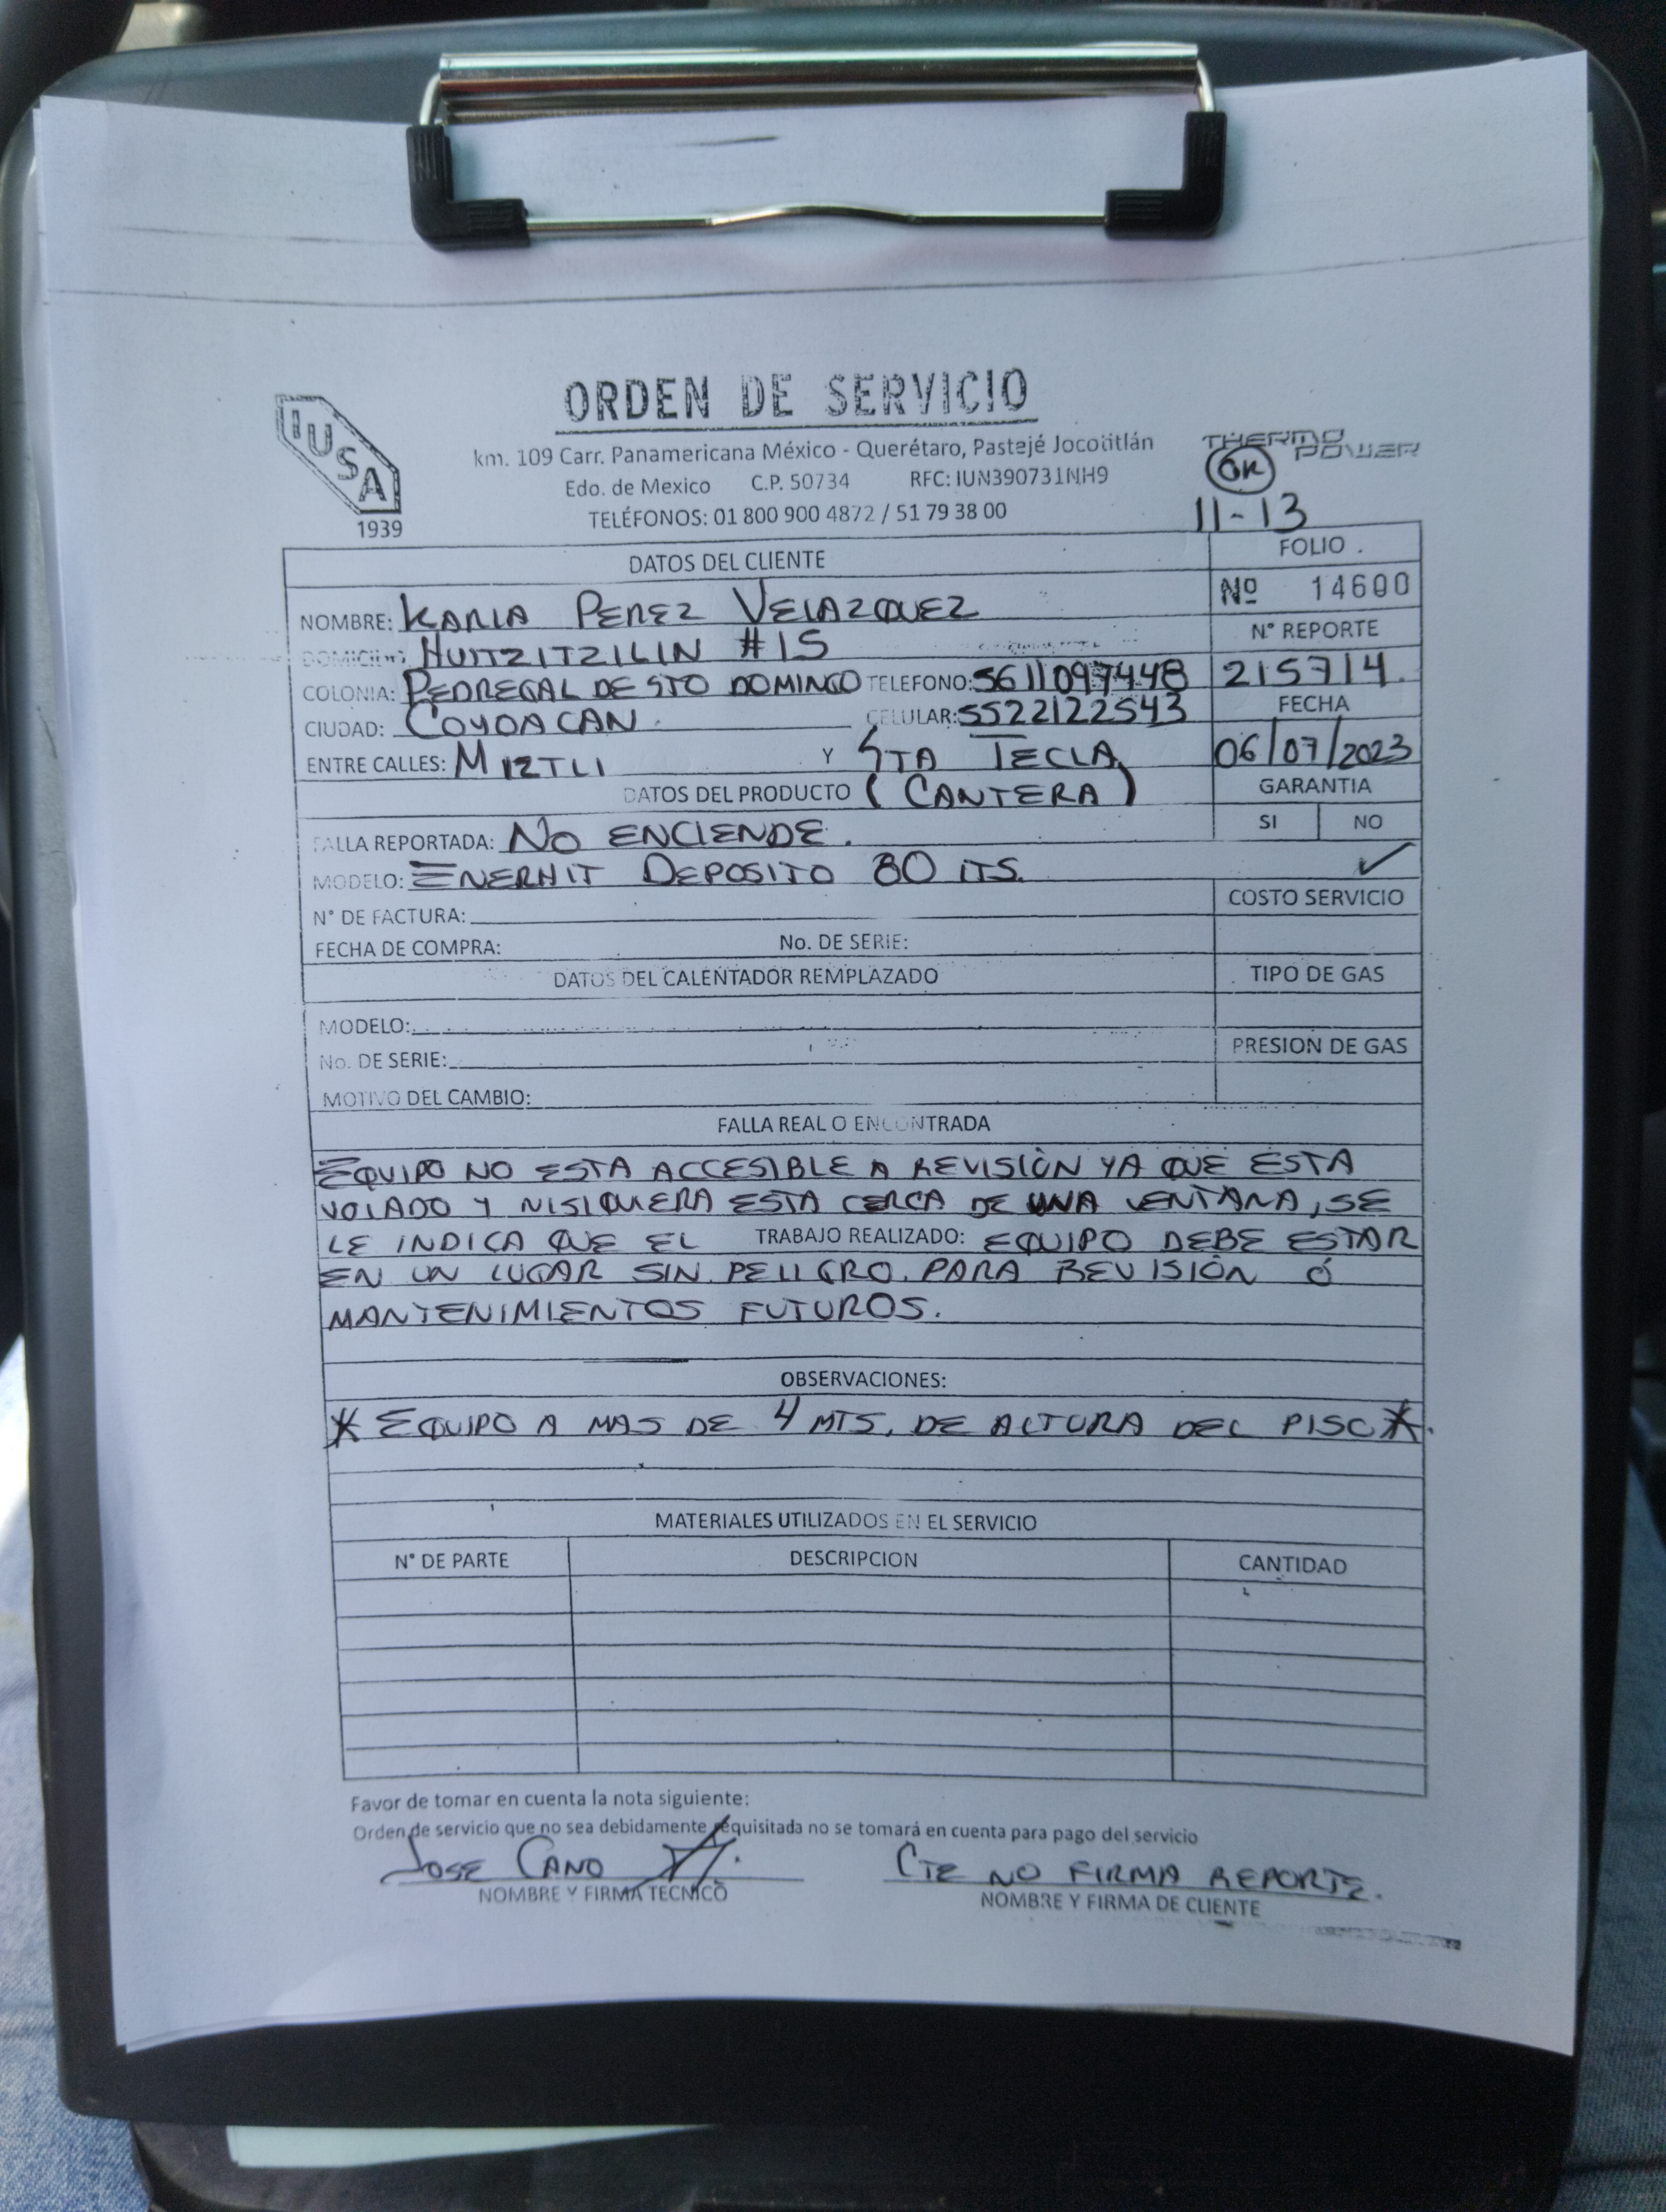 ORDEN DE SERVICIO
IUSA
1939
km. 109 Carr. Panamericana México - Querétaro, Pastejé Jocotitlán
Edo. de Mexico C.P. 50734 RFC: IUN390731NH9
TELÉFONOS: 01 800 900 4872 / 51 79 38 00
THERMO POWER
OK
11-13
DATOS DEL CLIENTE
FOLIO
Nº 14600
NOMBRE: KARLA PEREZ VELAZQUEZ
Nº REPORTE
DOMICILIO: HUITZITZILIN #15
COLONIA: PEDREGAL DE STO DOMINGO TELEFONO: 5611097448
215714
CIUDAD: COYOACAN CELULAR: 5522122543
FECHA
ENTRE CALLES: MIZTLI Y STA TECLA
06/07/2023
DATOS DEL PRODUCTO (CANTERA)
GARANTIA
SI NO
FALLA REPORTADA: NO ENCIENDE.
✓
MODELO: ENERHIT DEPOSITO 80 LTS.
COSTO SERVICIO
N° DE FACTURA:
FECHA DE COMPRA: No. DE SERIE:
DATOS DEL CALENTADOR REMPLAZADO
TIPO DE GAS
MODELO:
No. DE SERIE:
PRESION DE GAS
MOTIVO DEL CAMBIO:
FALLA REAL O ENCONTRADA
EQUIPO NO ESTA ACCESIBLE A REVISIÓN YA QUE ESTA
VOLADO Y NISIQUIERA ESTA CERCA DE UNA VENTANA, SE
LE INDICA QUE EL TRABAJO REALIZADO: EQUIPO DEBE ESTAR
EN UN LUGAR SIN PELIGRO. PARA REVISIÓN Ó
MANTENIMIENTOS FUTUROS.
OBSERVACIONES:
* EQUIPO A MAS DE 4 MTS. DE ALTURA DEL PISO*.
MATERIALES UTILIZADOS EN EL SERVICIO
N° DE PARTE DESCRIPCION CANTIDAD
Favor de tomar en cuenta la nota siguiente:
Orden de servicio que no sea debidamente requisitada no se tomará en cuenta para pago del servicio
JOSE CANO CTE NO FIRMA REPORTE.
NOMBRE Y FIRMA TECNICO NOMBRE Y FIRMA DE CLIENTE